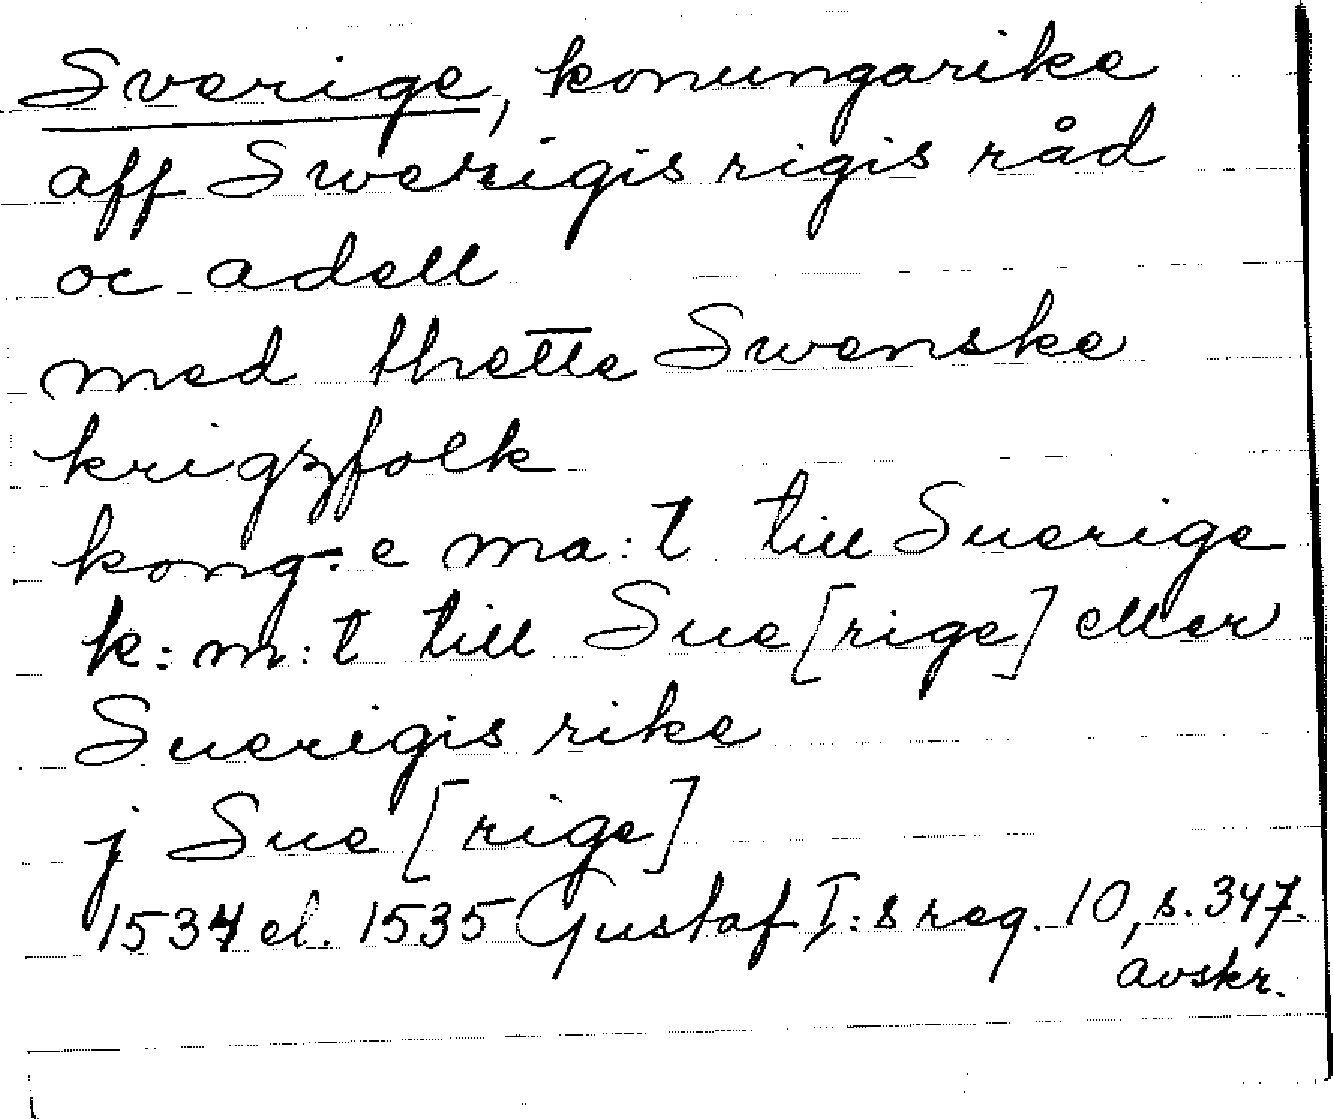 Sverige, konungarike
aff Swerigis rigis råd
oc adell
med thette Swenske
krigzfolk
kong-e ma:t till Suerige
k:m:t till Sue[rige] eller
Suerigis rike
j Sue[rige]
1534 el. 1535 Gustaf I:s reg. 10, s. 347.
avskr.